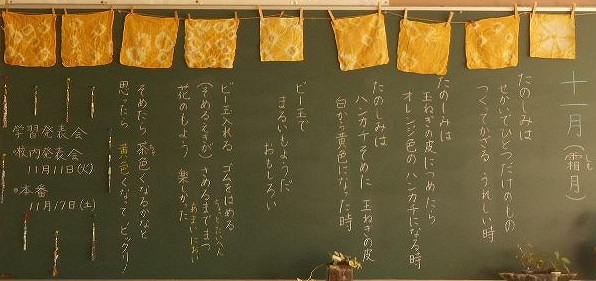 十一月(霜月)
たのしみは
せかいでひとつだけのもの
つくってかざる うれしい時
たのしみは
玉ねぎの皮につめたら
オレンジ色の ハンカチになる時
たのしみは
ハンカチそめた 玉ねぎの皮
白から黄色になった時
ビー玉で
まるいもようだ
おもしろい
ビー玉入れる ゴムをはめる
ちょっとたいへん
(そめるえきが)さめるまでまつ
あまいにおい
花のもよう 楽しかった
そめたら 茶色くなるかなと
思ったら 黄色くなって ビックリ!
学習発表会
•校内発表会
11月11日(火)
•本番
11月15日(土)